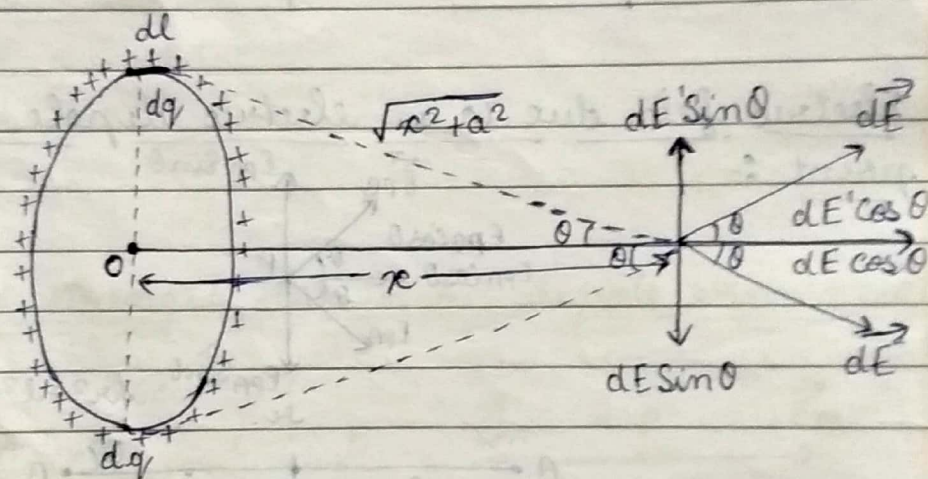 dl
dq
√x²+a²
dE'Sinθ
dE⃗'
θ
θ
dE'cosθ
O
x
θ
θ
dEcosθ
dESinθ
dE⃗
dq